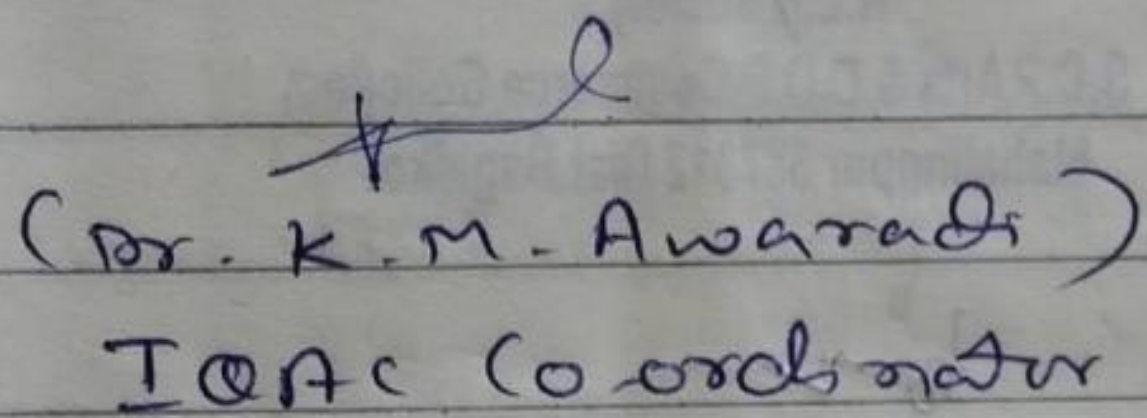 (Dr. K. M. Awaradi)
IQAC Co-ordinator